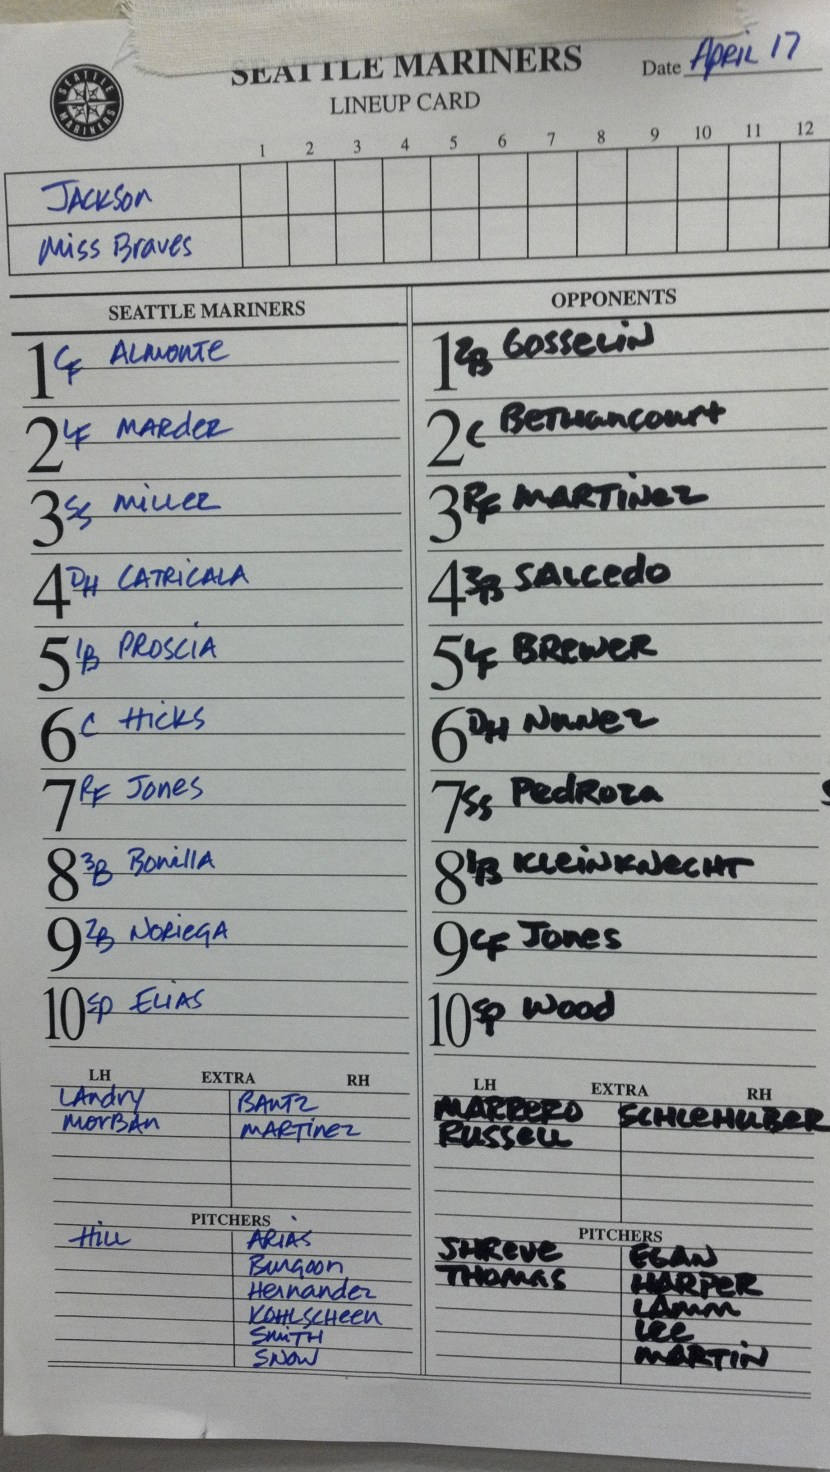 SEATTLE MARINERS
LINEUP CARD
Date April 17
SEATTLE MARINERS
1 2 3 4 5 6 7 8 9 10 11 12
Jackson
Miss Braves
SEATTLE MARINERS
1 CF Almonte
2 LF Marder
3 SS Miller
4 DH Catricala
5 1B Proscia
6 C Hicks
7 RF Jones
8 3B Bonilla
9 2B Noriega
10 SP Elias
LH EXTRA RH
Landry Bantz
Morban Martinez
PITCHERS
Hill Arias
Burgoon
Hernandez
Kohlscheen
Smith
Snow
OPPONENTS
1 2B Gosselin
2 C Bethancourt
3 RF Martinez
4 3B Salcedo
5 LF Brewer
6 DH Nunez
7 SS Pedroza
8 1B Kleinknecht
9 CF Jones
10 SP Wood
LH EXTRA RH
Marrero Schlehuber
Russell
PITCHERS
Shreve Egan
Thomas Harper
Lamm
Lee
Martin